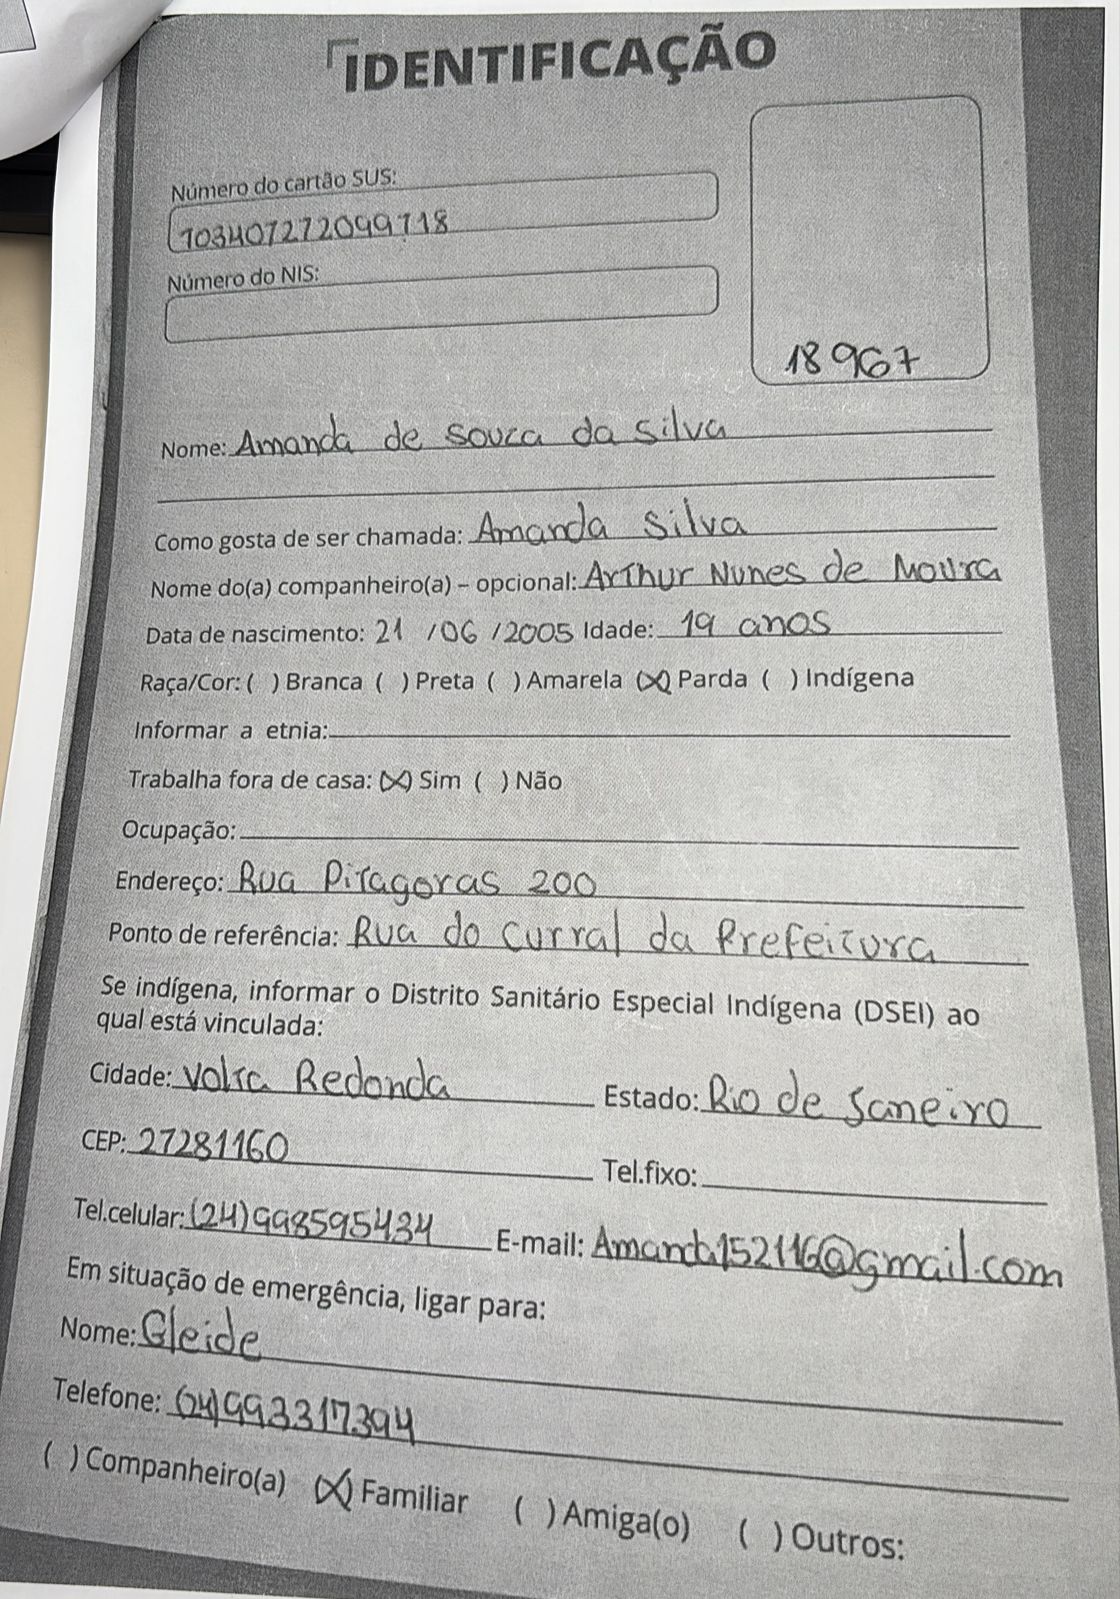 IDENTIFICAÇÃO
Número do cartão SUS:
703407272099718
Número do NIS:
18967
Nome: Amanda de souza da silva
Como gosta de ser chamada: Amanda silva
Nome do(a) companheiro(a) – opcional: Arthur Nunes de Moura
Data de nascimento: 21 /06 /2005 Idade: 19 anos
Raça/Cor: ( ) Branca ( ) Preta ( ) Amarela (X) Parda ( ) Indígena
Informar a etnia:
Trabalha fora de casa: (X) Sim ( ) Não
Ocupação:
Endereço: Rua Pitagoras 200
Ponto de referência: Rua do curral da Prefeitura
Se indígena, informar o Distrito Sanitário Especial Indígena (DSEI) ao
qual está vinculada:
Cidade: Volta Redonda Estado: Rio de Janeiro
CEP: 27281160 Tel.fixo:
Tel.celular: (24)998595434 E-mail: Amanda152116@gmail.com
Em situação de emergência, ligar para:
Nome: Gleide
Telefone: (24)993317394
( ) Companheiro(a) (X) Familiar ( ) Amiga(o) ( ) Outros: